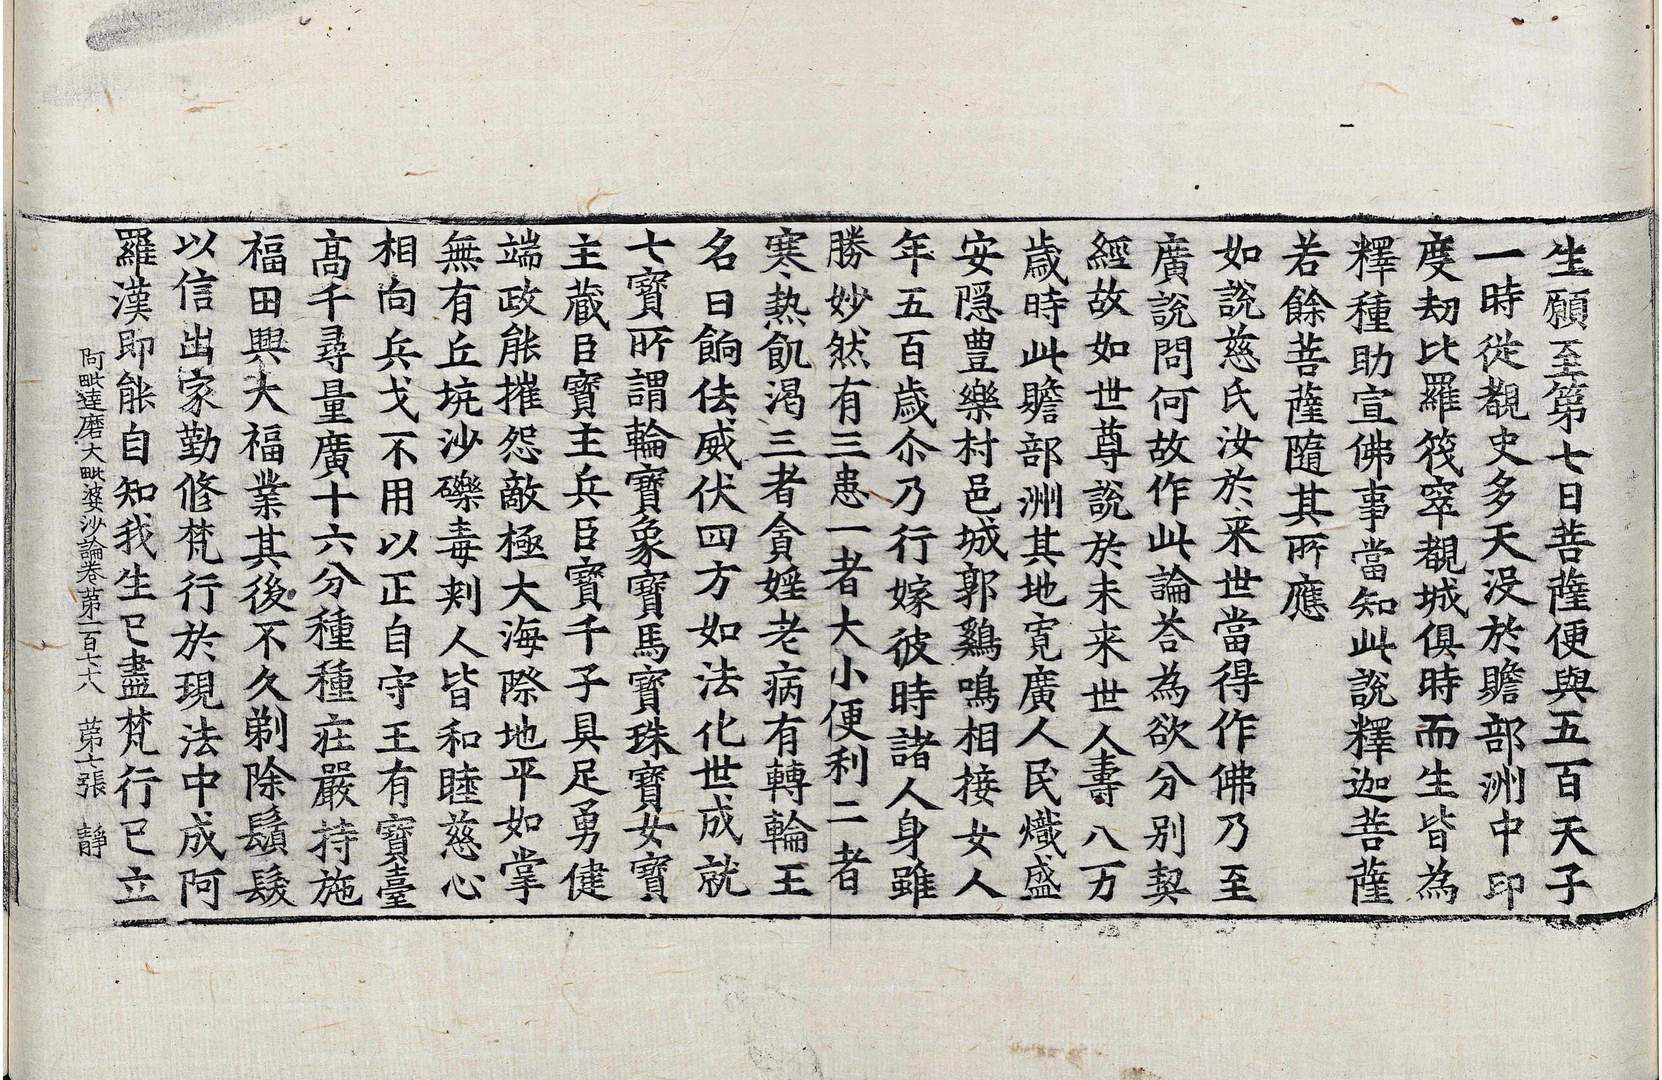 生願至第七日菩薩便與五百天子
一時從覩史多天没於贍部洲中印
度劫比羅筏窣覩城俱時而生皆為
釋種助宣佛事當知此說釋迦菩薩
若餘菩薩隨其所應
如說慈氏汝於来世當得作佛乃至
廣說問何故作此論荅為欲分別契
經故如世尊說於未来世人壽八万
歲時此贍部洲其地寬廣人民熾盛
安隱豊樂村邑城郭鷄鳴相接女人
年五百歲尒乃行嫁彼時諸人身雖
勝妙然有三患一者大小便利二者
寒熱飢渴三者貪婬老病有轉輪王
名曰餉佉威伏四方如法化世成就
七寶所謂輪寶象寶馬寶珠寶女寶
主藏臣寶主兵臣寶千子具足勇健
端政能摧怨敵極大海際地平如掌
無有丘坑沙礫毒刺人皆和睦慈心
相向兵戈不用以正自守王有寶臺
髙千尋量廣十六分種種莊嚴持施
福田興大福業其後不久剃除鬚髮
以信出家勤修梵行於現法中成阿
羅漢即能自知我生已盡梵行已立
阿毗達磨大毗婆沙論卷苐一百七十八 苐七張 靜